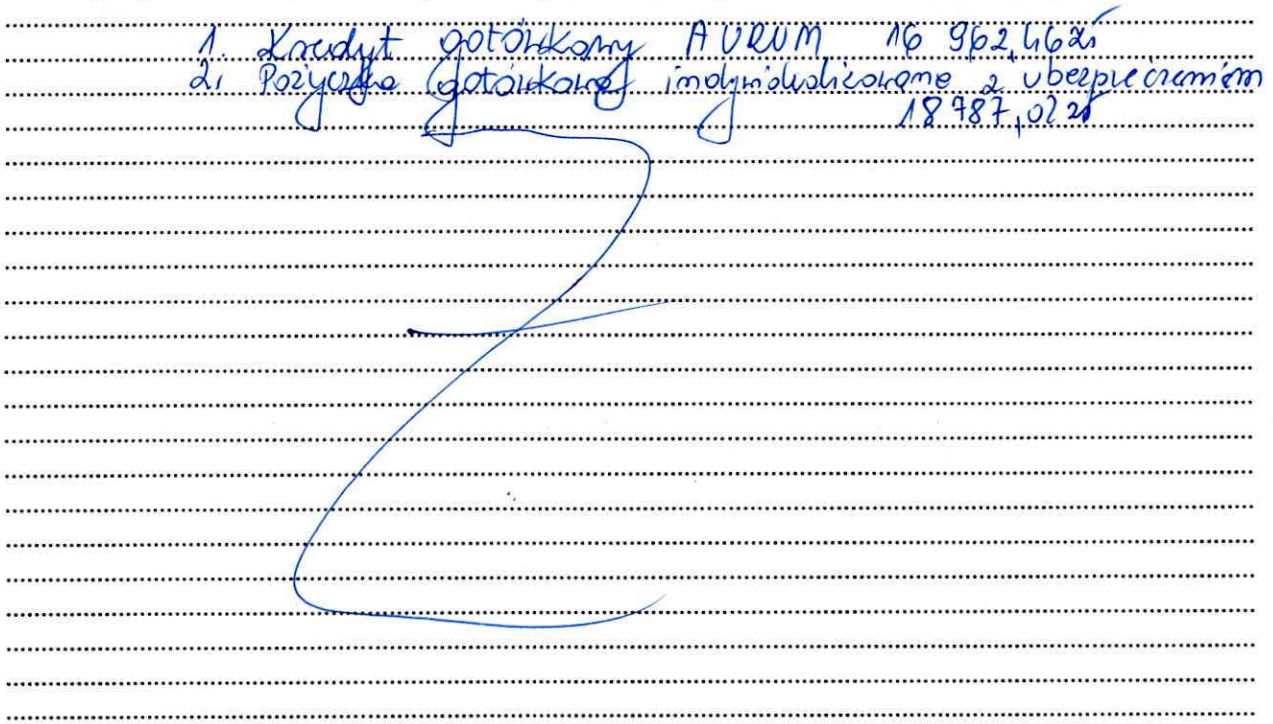 1. Kredyt gotówkowy AURUM 16 962,46 zł
2. Pożyczka gotówkowa indywidualizowana z ubezpieczeniem
18 787,02 zł